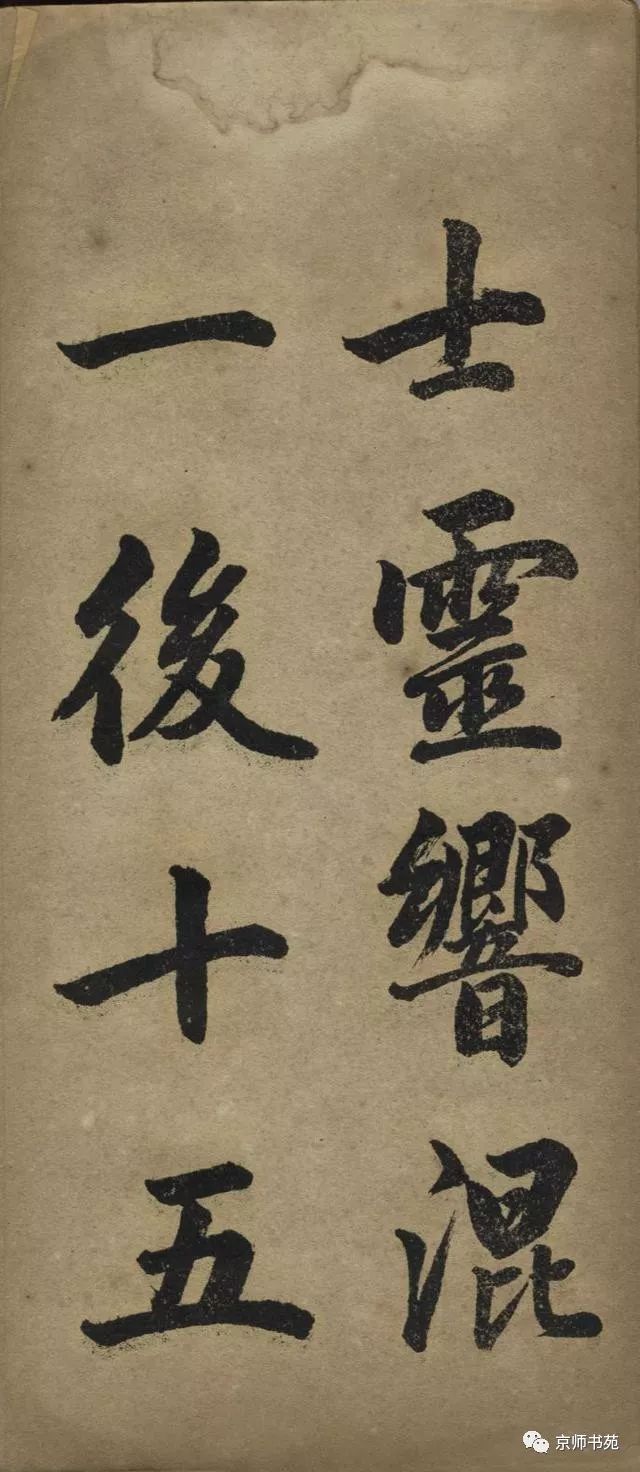 士靈響混
一後十五
京师书苑